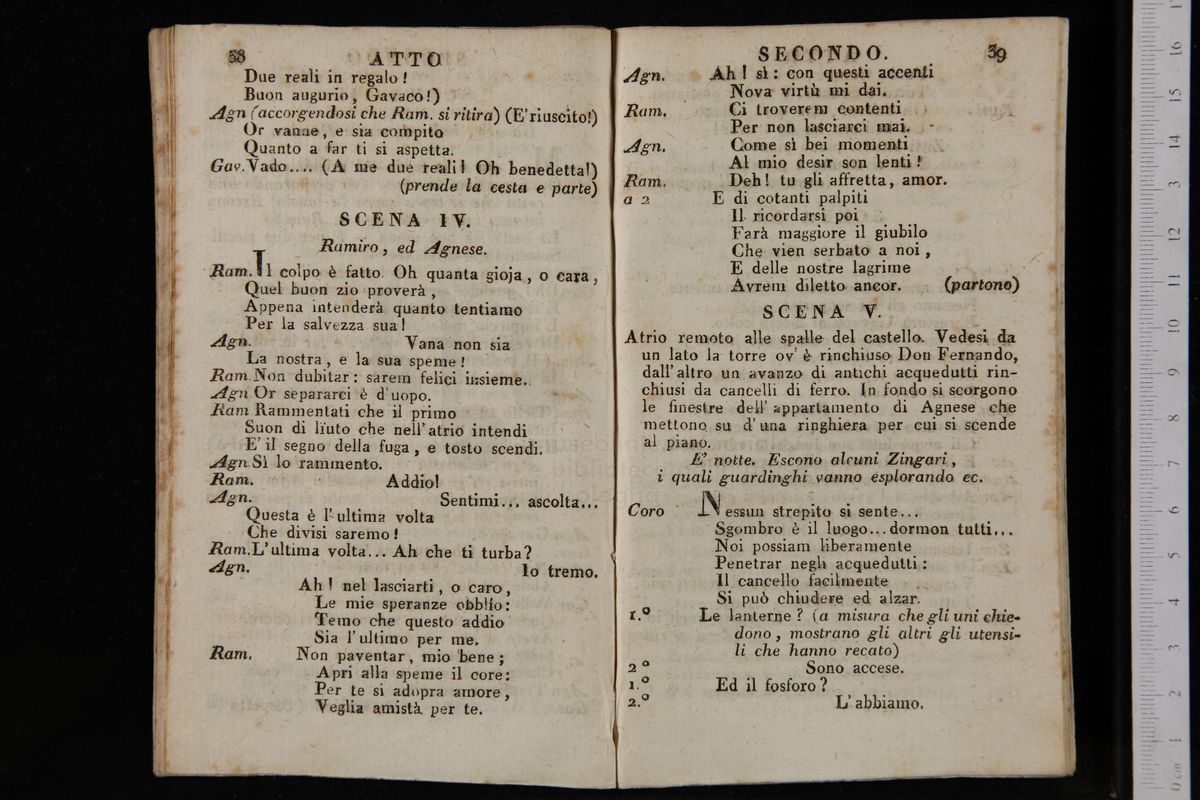 38
ATTO
Due reali in regalo!
Buon augurio, Gavaco!)
Agn (accorgendosi che Ram. si ritira) (E' riuscito!)
Or vanne, e sia compito
Quanto a far ti si aspetta.
Gav. Vado.... (A me due reali! Oh benedetta!)
(prende la cesta e parte)
SCENA IV.
Ramiro, ed Agnese.
Ram. Il colpo è fatto. Oh quanta gioja, o cara,
Quel buon zio proverà,
Appena intenderà quanto tentiamo
Per la salvezza sua!
Agn. Vana non sia
La nostra, e la sua speme!
Ram. Non dubitar: sarem felici insieme.
Agn Or separarci è d'uopo.
Ram Rammentati che il primo
Suon di liuto che nell'atrio intendi
E' il segno della fuga, e tosto scendi.
Agn Sì lo rammento.
Ram. Addio!
Agn. Sentimi... ascolta...
Questa è l'ultima volta
Che divisi saremo!
Ram. L'ultima volta... Ah che ti turba?
Agn. Io tremo.
Ah! nel lasciarti, o caro,
Le mie speranze obblìo:
Temo che questo addio
Sia l'ultimo per me.
Ram. Non paventar, mio bene;
Apri alla speme il core:
Per te si adopra amore,
Veglia amistà per te.
SECONDO.
39
Agn. Ah! sì: con questi accenti
Nova virtù mi dai.
Ram. Ci troverem contenti
Per non lasciarci mai.
Agn. Come sì bei momenti
Al mio desir son lenti!
Ram. Deh! tu gli affretta, amor.
a 2 E di cotanti palpiti
Il ricordarsi poi
Farà maggiore il giubilo
Che vien serbato a noi,
E delle nostre lagrime
Avrem diletto ancor. (partono)
SCENA V.
Atrio remoto alle spalle del castello. Vedesi da
un lato la torre ov' è rinchiuso Don Fernando,
dall'altro un avanzo di antichi acquedutti rin-
chiusi da cancelli di ferro. In fondo si scorgono
le finestre dell' appartamento di Agnese che
mettono su d'una ringhiera per cui si scende
al piano.
E' notte. Escono alcuni Zingari,
i quali guardinghi vanno esplorando ec.
Coro Nessun strepito si sente...
Sgombro è il luogo...dormon tutti...
Noi possiam liberamente
Penetrar negli acquedutti:
Il cancello facilmente
Si può chiudere ed alzar.
1.º Le lanterne? (a misura che gli uni chie-
dono, mostrano gli altri gli utensi-
li che hanno recato)
2º Sono accese.
1.º Ed il fosforo?
2.º L'abbiamo.
0 cm 1 2 3 4 5 6 7 8 9 10 11 12 13 14 15 16 17